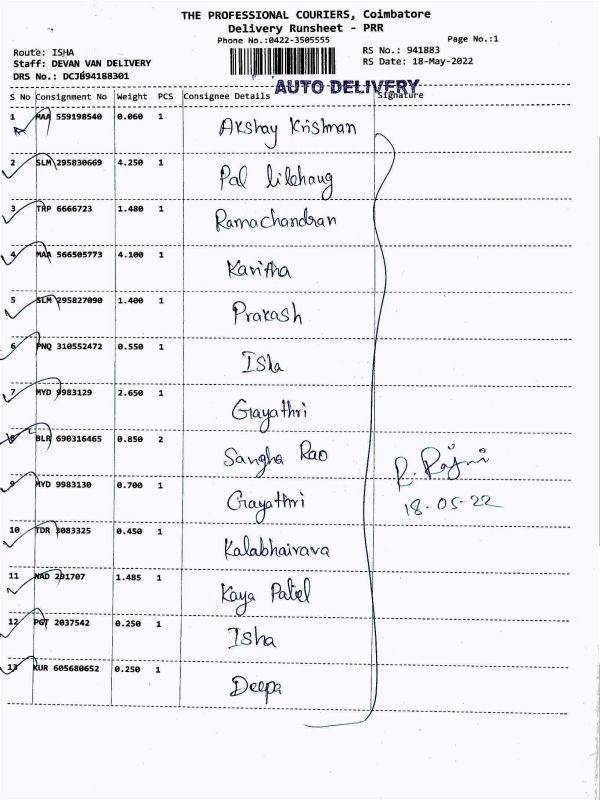 THE PROFESSIONAL COURIERS, Coimbatore
Delivery Runsheet - PRR
Phone No.:0422-3505555
Page No.:1
Route: ISHA
RS No.: 941883
Staff: DEVAN VAN DELIVERY
RS Date: 18-May-2022
DRS No.: DCJB94188301
AUTO DELIVERY
S No Consignment No Weight PCS Consignee Details Signature
1 MAA 559198540 0.060 1 Akshay Krishnan
2 SLM 295830669 4.250 1 Pal lilehaug
3 TRP 6666723 1.480 1 Ramachandran
4 MAA 566505773 4.100 1 Kavitha
5 SLM 295827090 1.400 1 Prakash
6 PNQ 310552472 0.550 1 Isha
7 MYD 9983129 2.650 1 Gayathri
8 BLR 690316465 0.850 2 Sangha Rao
R. Rajni
9 MYD 9983130 0.700 1 Gayathri
18-05-22
10 TDR 3083325 0.450 1 Kalabhairava
11 NAD 291707 1.485 1 Kaya Patel
12 PGT 2037542 0.250 1 Isha
13 KUR 605680652 0.250 1 Deepa